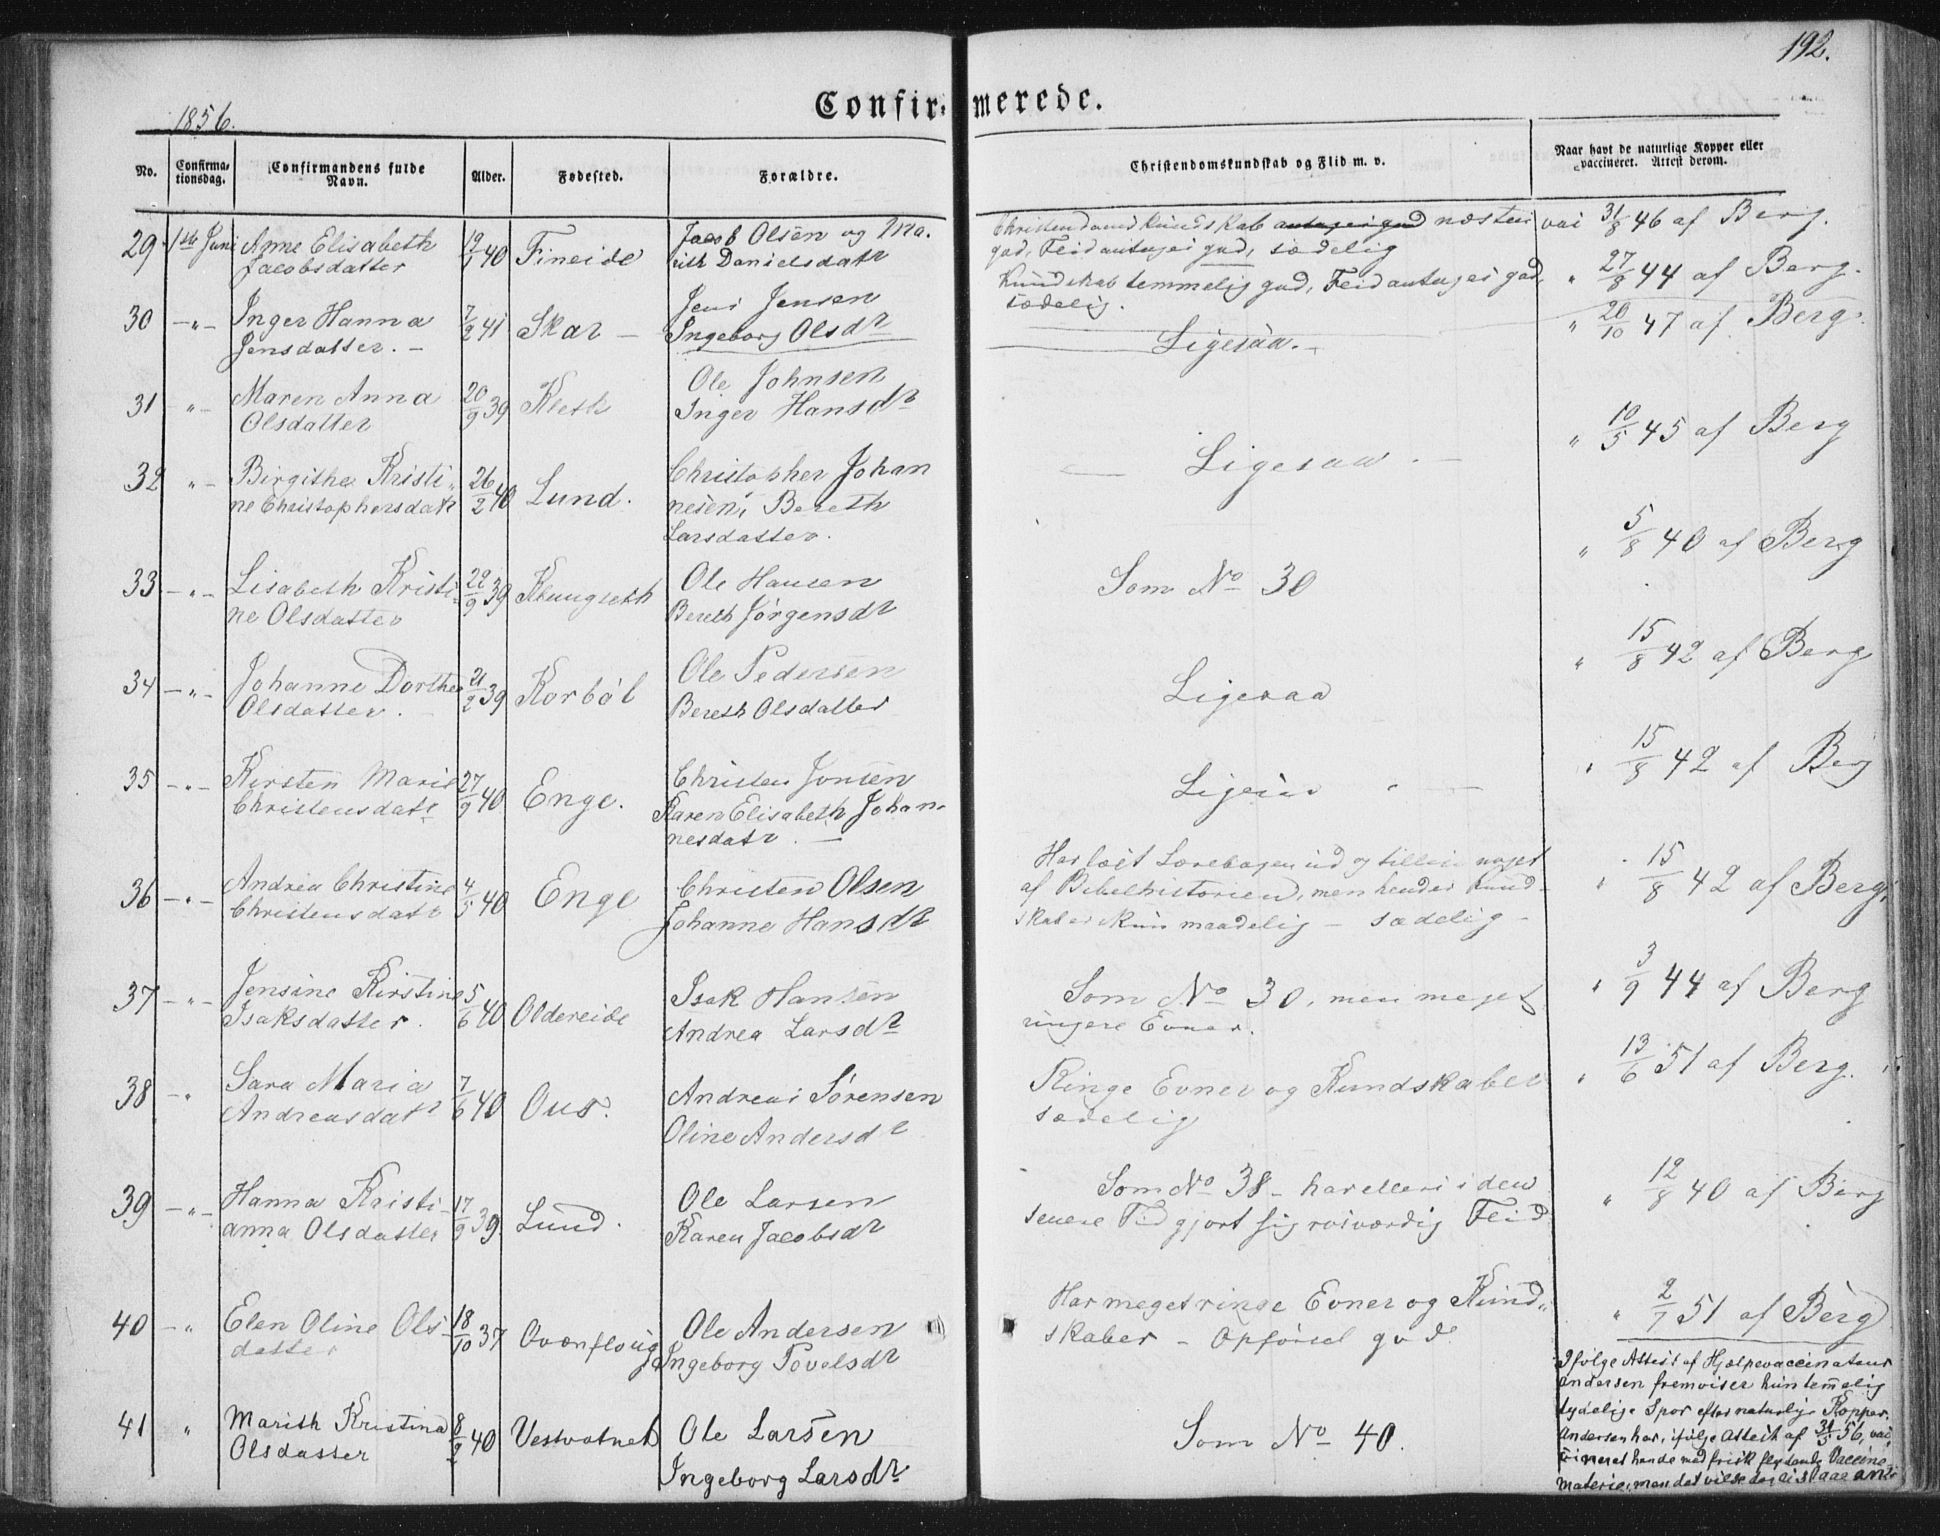 192.
1856.
Confir- merede.
No.
Confirma-
tionsdag.
Confirmandens fulde
Navn.
Alder.
Fødested.
Forældre.
Christendomskundskab og Flid m. v.
Naar havt de naturlige Kopper eller
vaccineret. Attest derom.
29 1ste Juni Anne Elisabeth
Jacobsdatter
40 Fineide
Jacob Olsen og Ma-
rith Danielsdatr
Christendomskundskab antagei god næsten
god, Fliid antagei god, sædelig
vac 31/8 46 af Berg.
30 -"- Inger Hanna
Jensdatter.-
7/2 41 Skar -
Jens Jensen
Ingeborg Olsdr
Kundskab temmelig god, Fliid antagei god,
sædelig.
" 27/8 44 af Berg.
31 "- Maren Anna
Olsdatter
20/9 39 Kleth
Ole Johnsen
Inger Hansdr
Ligesaa.-
" 20/10 47 af Berg.
32 "- Birgithe Kristi-
ne Christophersdatr
26/2 40 Lund.
Christopher Johan
nesen, Bereth
Larsdatter.
- Ligesaa. -
" 10/5 45 af Berg
33 -"- Lisabeth Kristi-
ne Olsdatter
22/9 39 Klungseth
Ole Hansen
Bereth Jørgensdr
Som No 30
" 5/8 40 af Berg
34 -"- Johanne Dorthea
Olsdatter.
21/2 39 Korbøl
Ole Pedersen
Bereth Olsdatter
Ligesaa
" 15/8 42 af Berg
35 -"- Kirsten Marie
Christensdatr
27/9 40 Enge.
Christen Jonsen
Karen Elisabeth Johan-
nesdatr. -
Ligesaa
" 15/8 42 af Berg
36 -"- Andrea Christine
Christensdatr
4/5 40 Enge
Christen Olsen
Johanne Hansdr
Har læst Lærebogen ud og tillige noget
af Bibelhistorien, men hendes Kund-
skab er kun maadelig - sædelig -
" 15/8 42 af Berg
37 -"- Jensine Kirstine
Isaksdatter.
5/6 40 Oldereide
Isak Hansen
Andrea Larsdr
Som No 30, men meget
ringere Evner.
" 3/9 44 af Berg
38 -" Sara Maria
Andreasdatr
7/6 40 Ous.
Andreas Sørensen
Oline Andersdr
Ringe Evner og Kundskaber
sædelig
" 13/6 51 af Berg.
39 -"- Hanna Kristi-
anna Olsdatter
17/9 39 Lund.
Ole Larsen
Karen Jacobsdr
Som No 38 - har ellers i den
senere Tid gjort sig roisværdig Fliid
" 12/8 40 af Berg
40 -"- Elen Oline Ols-
datter
18/10 37 Ovænflaug
Ole Andersen
Ingeborg Povelsdr
Har meget ringe Evner og Kund-
skaber - Opførsel god
" 2/7 51 af Berg
41 " Marith Kristina
Olsdatter
8/2 40 Vestvatnet
Ole Larsen
Ingeborg Larsdr
Som No 40.
Ifølge Attest af Hjælpevaccinateur
Andersen fremviser hun temmelig
tydelige Spor efter naturlige Kopper.
Andersen har, ifølge Attest af 31/5 56, vac
cineret hende med frisk flydende Vaccine
materie, men det vilde dog ei slaae an